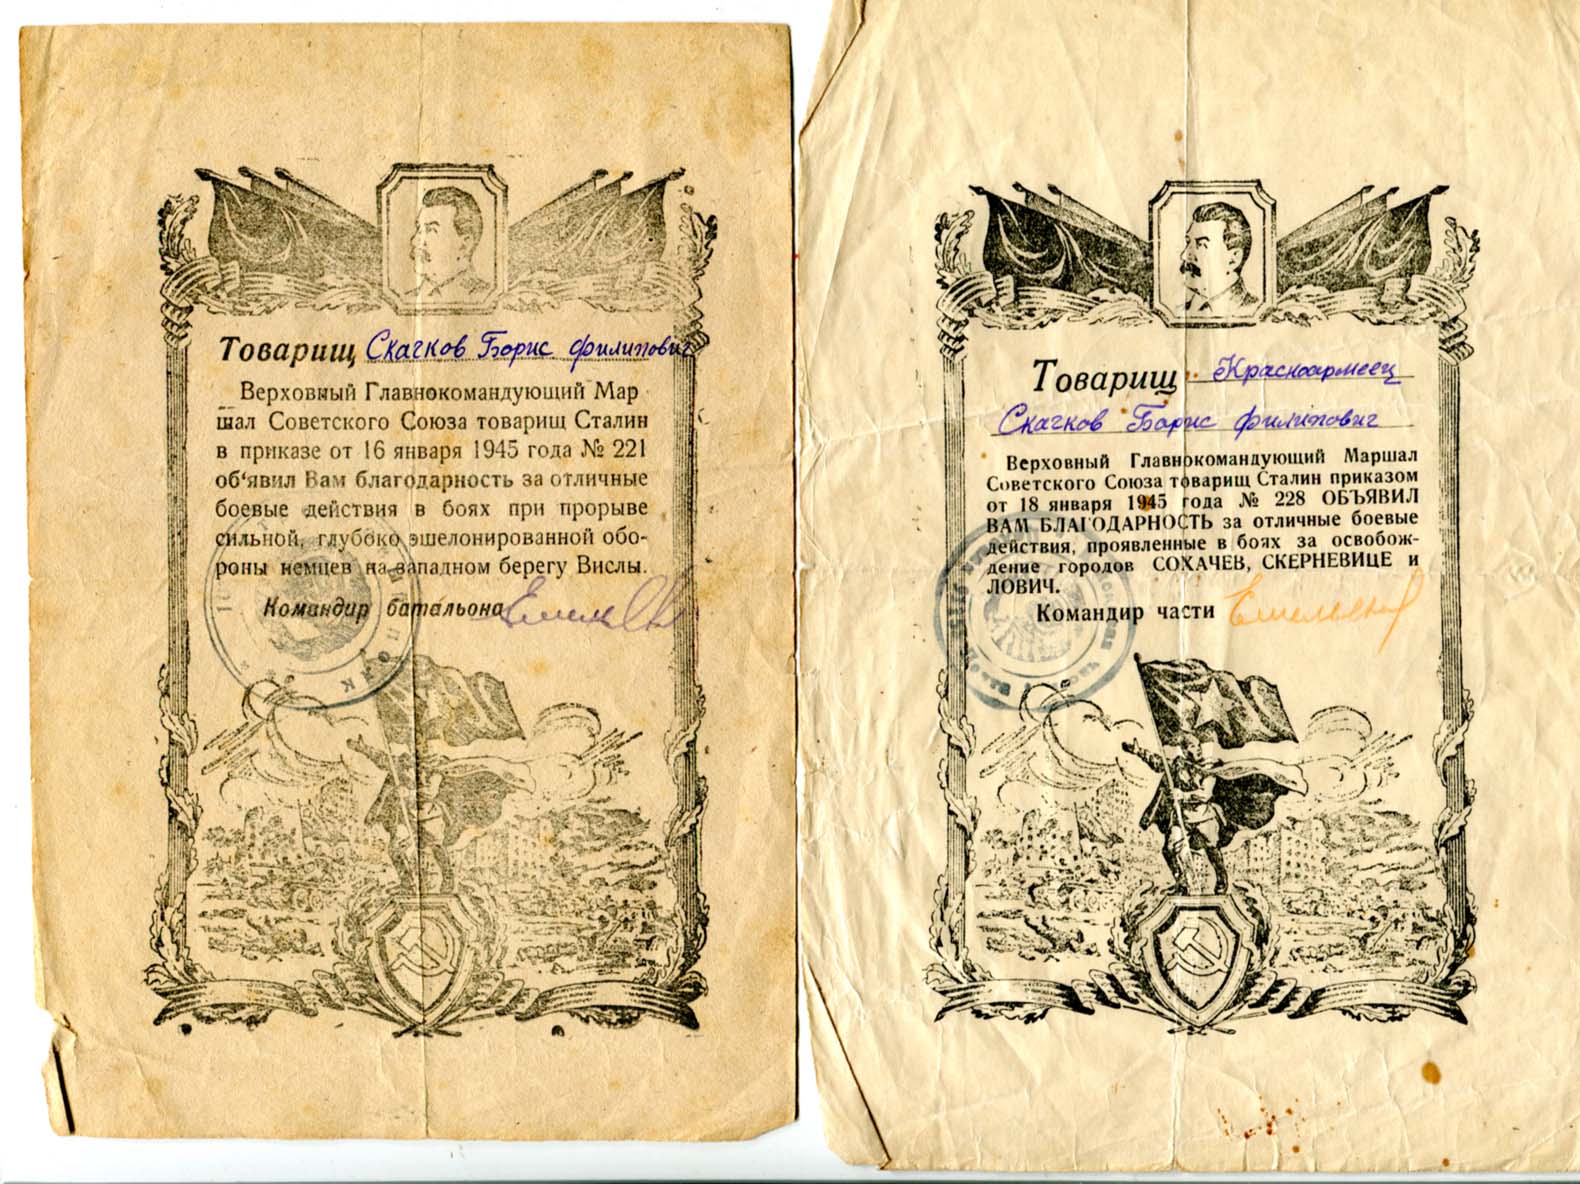 Товарищ Скачков Борис Филипович
Верховный Главнокомандующий Мар
шал Советского Союза товарищ Сталин
в приказе от 16 января 1945 года № 221
об‘явил Вам благодарность за отличные
боевые действия в боях при прорыве
сильной, глубоко эшелонированной обо-
роны немцев на западном берегу Вислы.
Командир батальона
Товарищ Красноармеец
Скачков Борис Филипович
Верховный Главнокомандующий Маршал
Советского Союза товарищ Сталин приказом
от 18 января 1945 года № 228 ОБЪЯВИЛ
ВАМ БЛАГОДАРНОСТЬ за отличные боевые
действия, проявленные в боях за освобож-
дение городов СОХАЧЕВ, СКЕРНЕВИЦЕ и
ЛОВИЧ.
Командир части